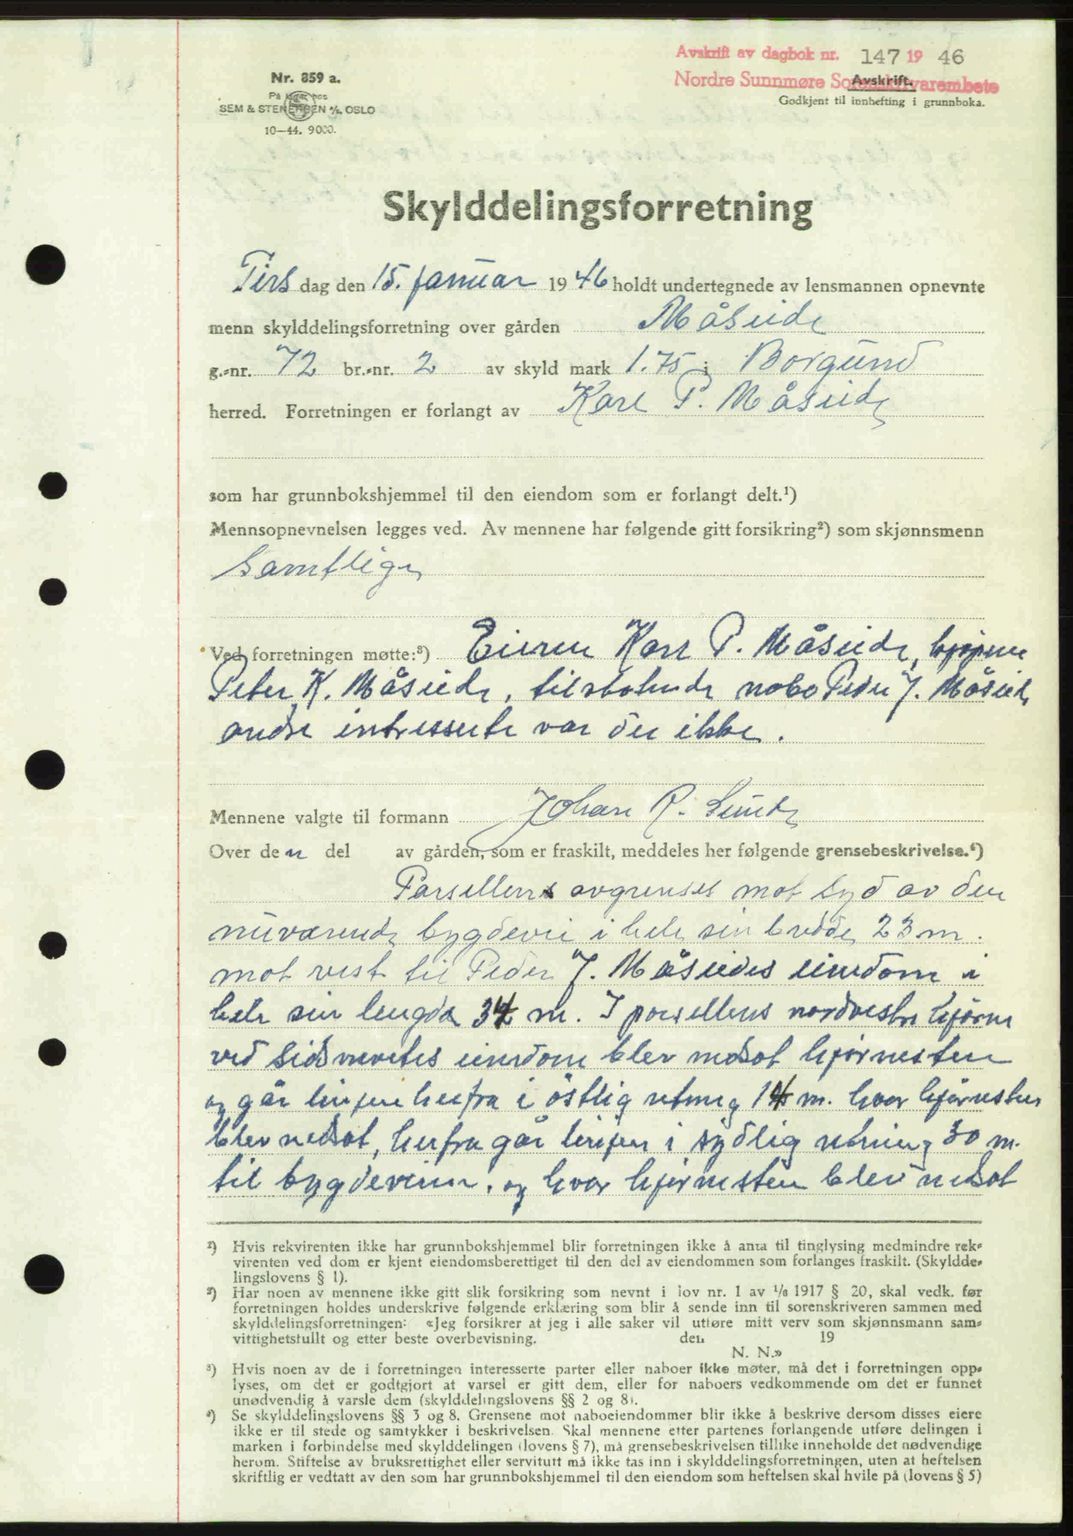 Avskrift av dagbok nr. 147 19 46
Nordre Sunnmøre Sorenskrivarembete
Avskrift.
Godkjent til innhefting i grunnboka.
Nr. 859 a.
På lager hos
SEM & STENERSEN A/S OSLO
10—44. 9000.
Skylddelingsforretning
Tirsdag den 15. januar 1946 holdt undertegnede av lensmannen opnevnte
menn skylddelingsforretning over gården Måseide
g.-nr. 72 br.-nr. 2 av skyld mark 1.75 i Borgund
herred. Forretningen er forlangt av Karl P. Måseide
som har grunnbokshjemmel til den eiendom som er forlangt delt.¹)
Mennsopnevnelsen legges ved. Av mennene har følgende gitt forsikring²) som skjønnsmenn
Samtlige
Ved forretningen møtte:³) Eieren Karl P. Måseide,
Peter K. Måseide, tilstøtende nabo Peder J. Måseide
andre intresserte var der ikke.
Mennene valgte til formann Johan R. Sunde
Over den del av gården, som er fraskilt, meddeles her følgende grensebeskrivelse.⁴)
Parsellens avgrenses mot syd av den
nuværende bygdevei i hele sin bredde 23 m.
mot vest til Peder J. Måseides eiendom i
hele sin lengde 34 m. I parsellens nordvestre hjørne
ved sidsnevntes eiendom blev nedsat hjørnesten
og går linjen herfra i östlig retning 14 m. hvor hjørnesten
blev nedsat, herfra går linjen i sydlig retning 30 m.
til bygdeveien, og hvor hjørnesten blev nedsat
¹) Hvis rekvirenten ikke har grunnbokshjemmel blir forretningen ikke å anta til tinglysing medmindre rek-
virenten ved dom er kjent eiendomsberettiget til den del av eiendommen som forlanges fraskilt. (Skyldde-
lingslovens § 1).
²) Har noen av mennene ikke gitt slik forsikring som nevnt i lov nr. 1 av 1/8 1917 § 20, skal vedk. før
forretningen holdes underskrive følgende erklæring som blir å sende inn til sorenskriveren sammen med
skylddelingsforretningen: «Jeg forsikrer at jeg i alle saker vil utføre mitt verv som skjønnsmann sam-
vittighetsfullt og etter beste overbevisning. den 19
N. N.»
³) Hvis noen av de i forretningen interesserte parter eller naboer ikke møter, må det i forretningen opp-
lyses, om det er godtgjort at varsel er gitt dem, eller for naboers vedkommende om det er funnet
unødvendig å varsle dem (skylddelingslovens §§ 2 og 8).
⁴) Se skylddelingslovens §§ 3 og 8. Grensene mot naboeiendommer blir ikke å beskrive dersom disses eiere
ikke er til stede og samtykker i beskrivelsen. Skal mennene etter partenes forlangende utføre delingen i
marken i forbindelse med skylddelingen (lovens § 7), må grensebeskrivelsen tillike inneholde det nødvendige
herom. Stiftelse av bruksrettighet eller servitutt må ikke tas inn i skylddelingsforretningen, uten at heftelsen
skriftlig er vedtatt av den som har grunnbokshjemmel til den eiendom som heftelsen skal hvile på (lovens § 5)